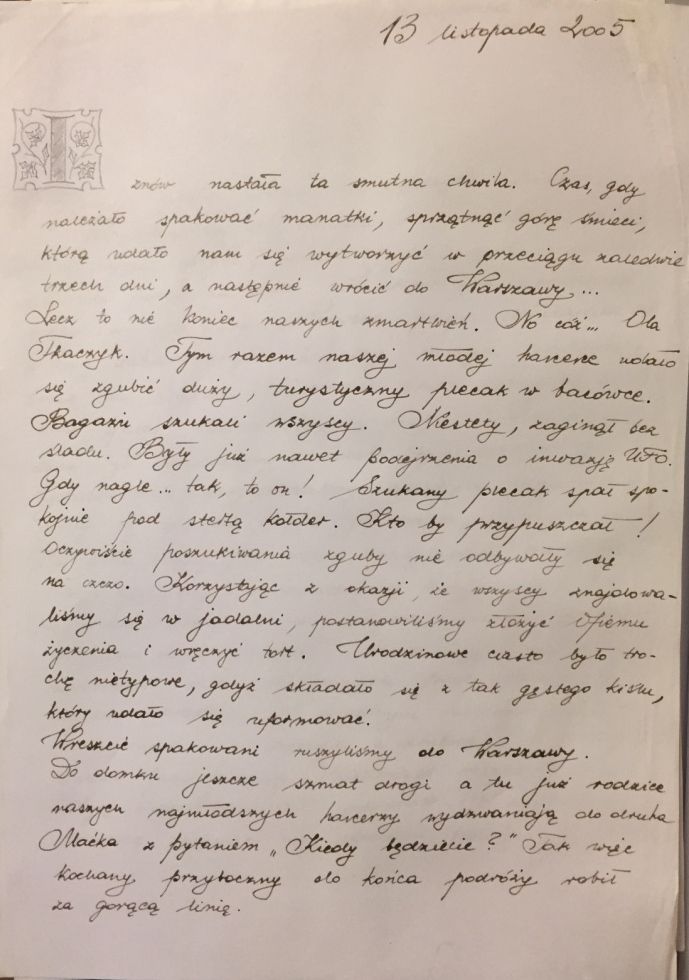 13 listopada 2005
I znów nastała ta smutna chwila. Czas, gdy
należało spakować manatki, sprzątnąć górę śmieci,
którą udało nam się wytworzyć w przeciągu zaledwie
trzech dni, a następnie wrócić do Warszawy...
Lecz to nie koniec naszych zmartwień. No cóż... Ola
Tkaczyk. Tym razem naszej młodej harcerce udało
się zgubić duży, turystyczny plecak w bacówce.
Bagażu szukali wszyscy. Niestety, zaginął bez
śladu. Były już nawet podejrzenia o inwazję UFO.
Gdy nagle... tak, to on! Szukany plecak spał spo-
kojnie pod stertą kołder. Kto by przypuszczał!
Oczywiście poszukiwania zguby nie odbywały się
na czczo. Korzystając z okazji, że wszyscy znajdowa-
liśmy się w jadalni, postanowiliśmy złożyć
życzenia i wręczyć tort. Urodzinowe ciasto było tro-
chę nietypowe, gdyż składało się z tak gęstego kiślu,
który udało się uformować.
Wreszcie spakowani ruszyliśmy do Warszawy.
Do domku jeszcze szmat drogi a tu już rodzice
naszych najmłodszych harcerzy wydzwaniają do druha
Maćka z pytaniem „Kiedy będziecie?" Tak więc
kochany przyboczny do końca podróży robił
za gorącą linię.